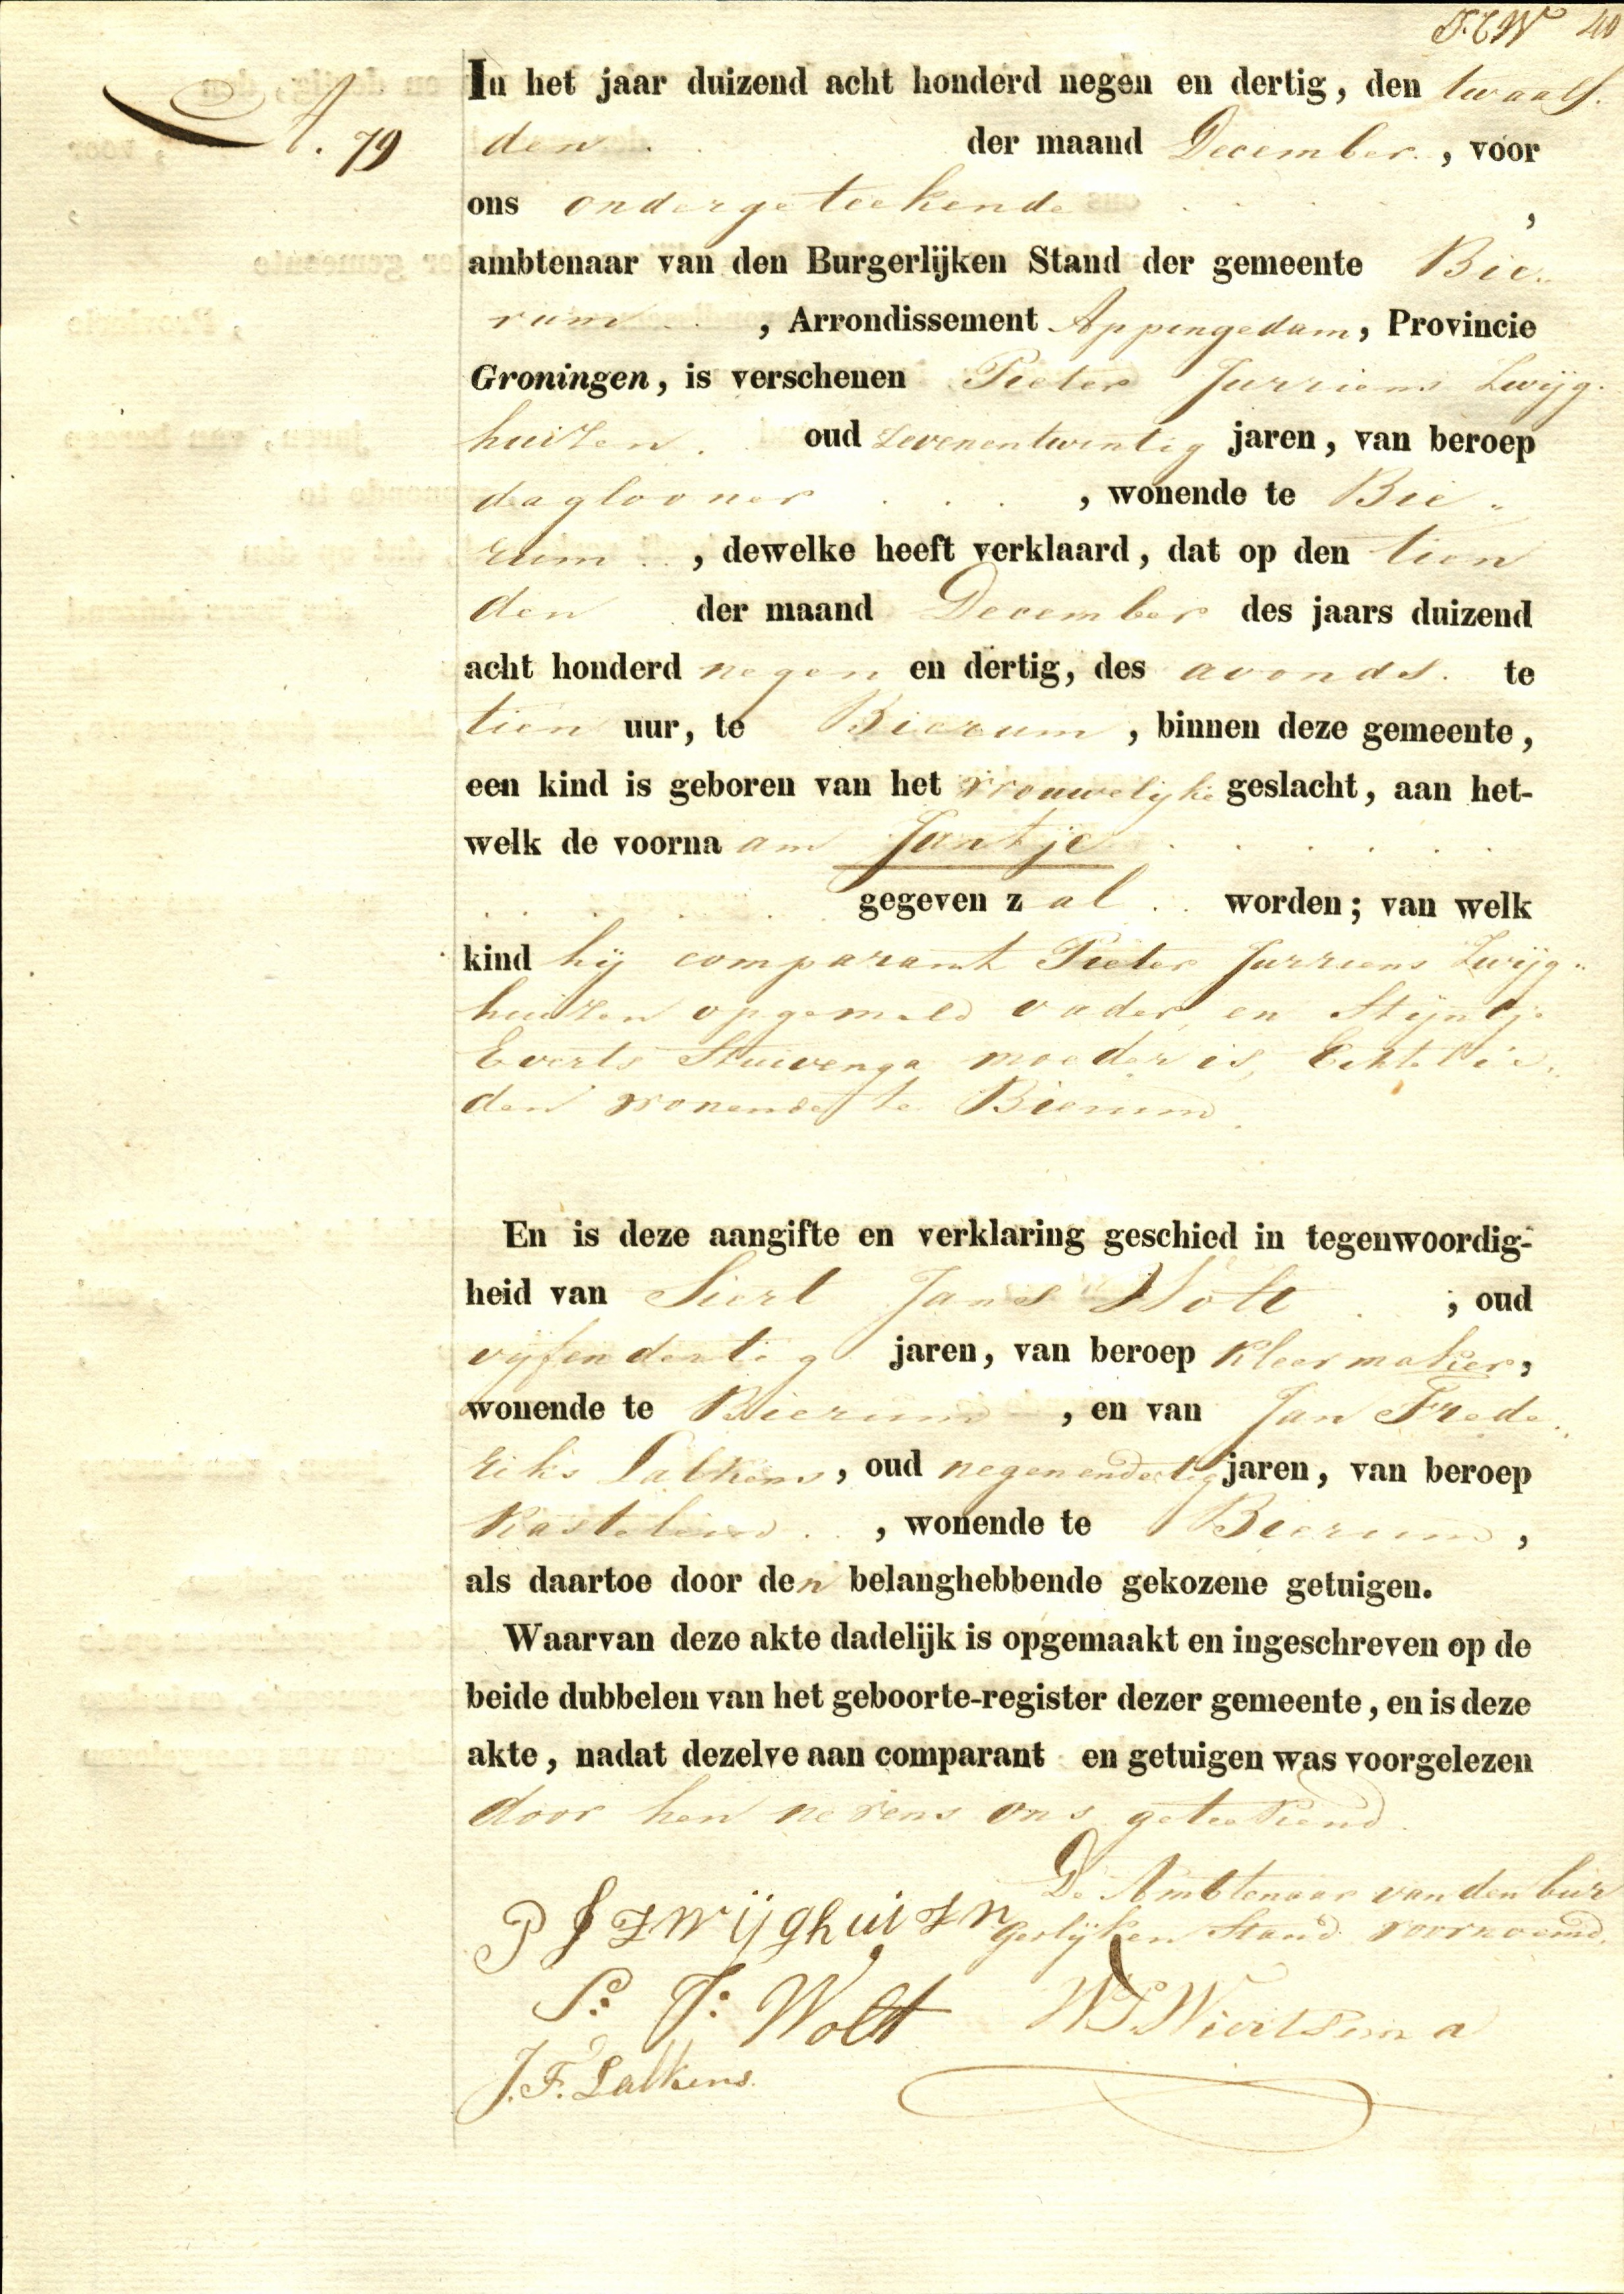 40
A. 79
In het jaar duizend acht honderd negen en dertig, den twaalf-
den der maand December, voor
ons ondergeteekende,
ambtenaar van den Burgerlijken Stand der gemeente Bie-
rum, Arrondissement Appingedam, Provincie
Groningen, is verschenen Pieter Jurriens Zwijg-
huizen oud zevenentwintig jaren, van beroep
daglooner, wonende te Bie-
rum, dewelke heeft verklaard, dat op den tien
den der maand December des jaars duizend
acht honderd negen en dertig, des avonds te
tien uur, te Bierum, binnen deze gemeente,
een kind is geboren van het vrouwelijke geslacht, aan het-
welk de voornaam Jantje
gegeven zal worden; van welk
kind hij comparant Pieter Jurriens Zwijg-
huizen opgemeld vader, en Stijntje
Everts Stuivenga moeder is, Echtelie-
den wonende te Bierum
En is deze aangifte en verklaring geschied in tegenwoordig-
heid van Siert Jans Wolt, oud
vijfendertig jaren, van beroep kleermaker,
wonende te Bierum, en van Jan Frede-
riks Lalkens, oud negenendertig jaren, van beroep
Kastelein, wonende te Bierum,
als daartoe door den belanghebbende gekozene getuigen.
Waarvan deze akte dadelijk is opgemaakt en ingeschreven op de
beide dubbelen van het geboorte-register dezer gemeente, en is deze
akte, nadat dezelve aan comparant en getuigen was voorgelezen
door hen nevens ons geteekend.
De Ambtenaar van den bur
gerlijken Stand voornoemd.
P J Zwijghuizn
S: J: Wolt
W Wiertsema
J. F. Lalkens.